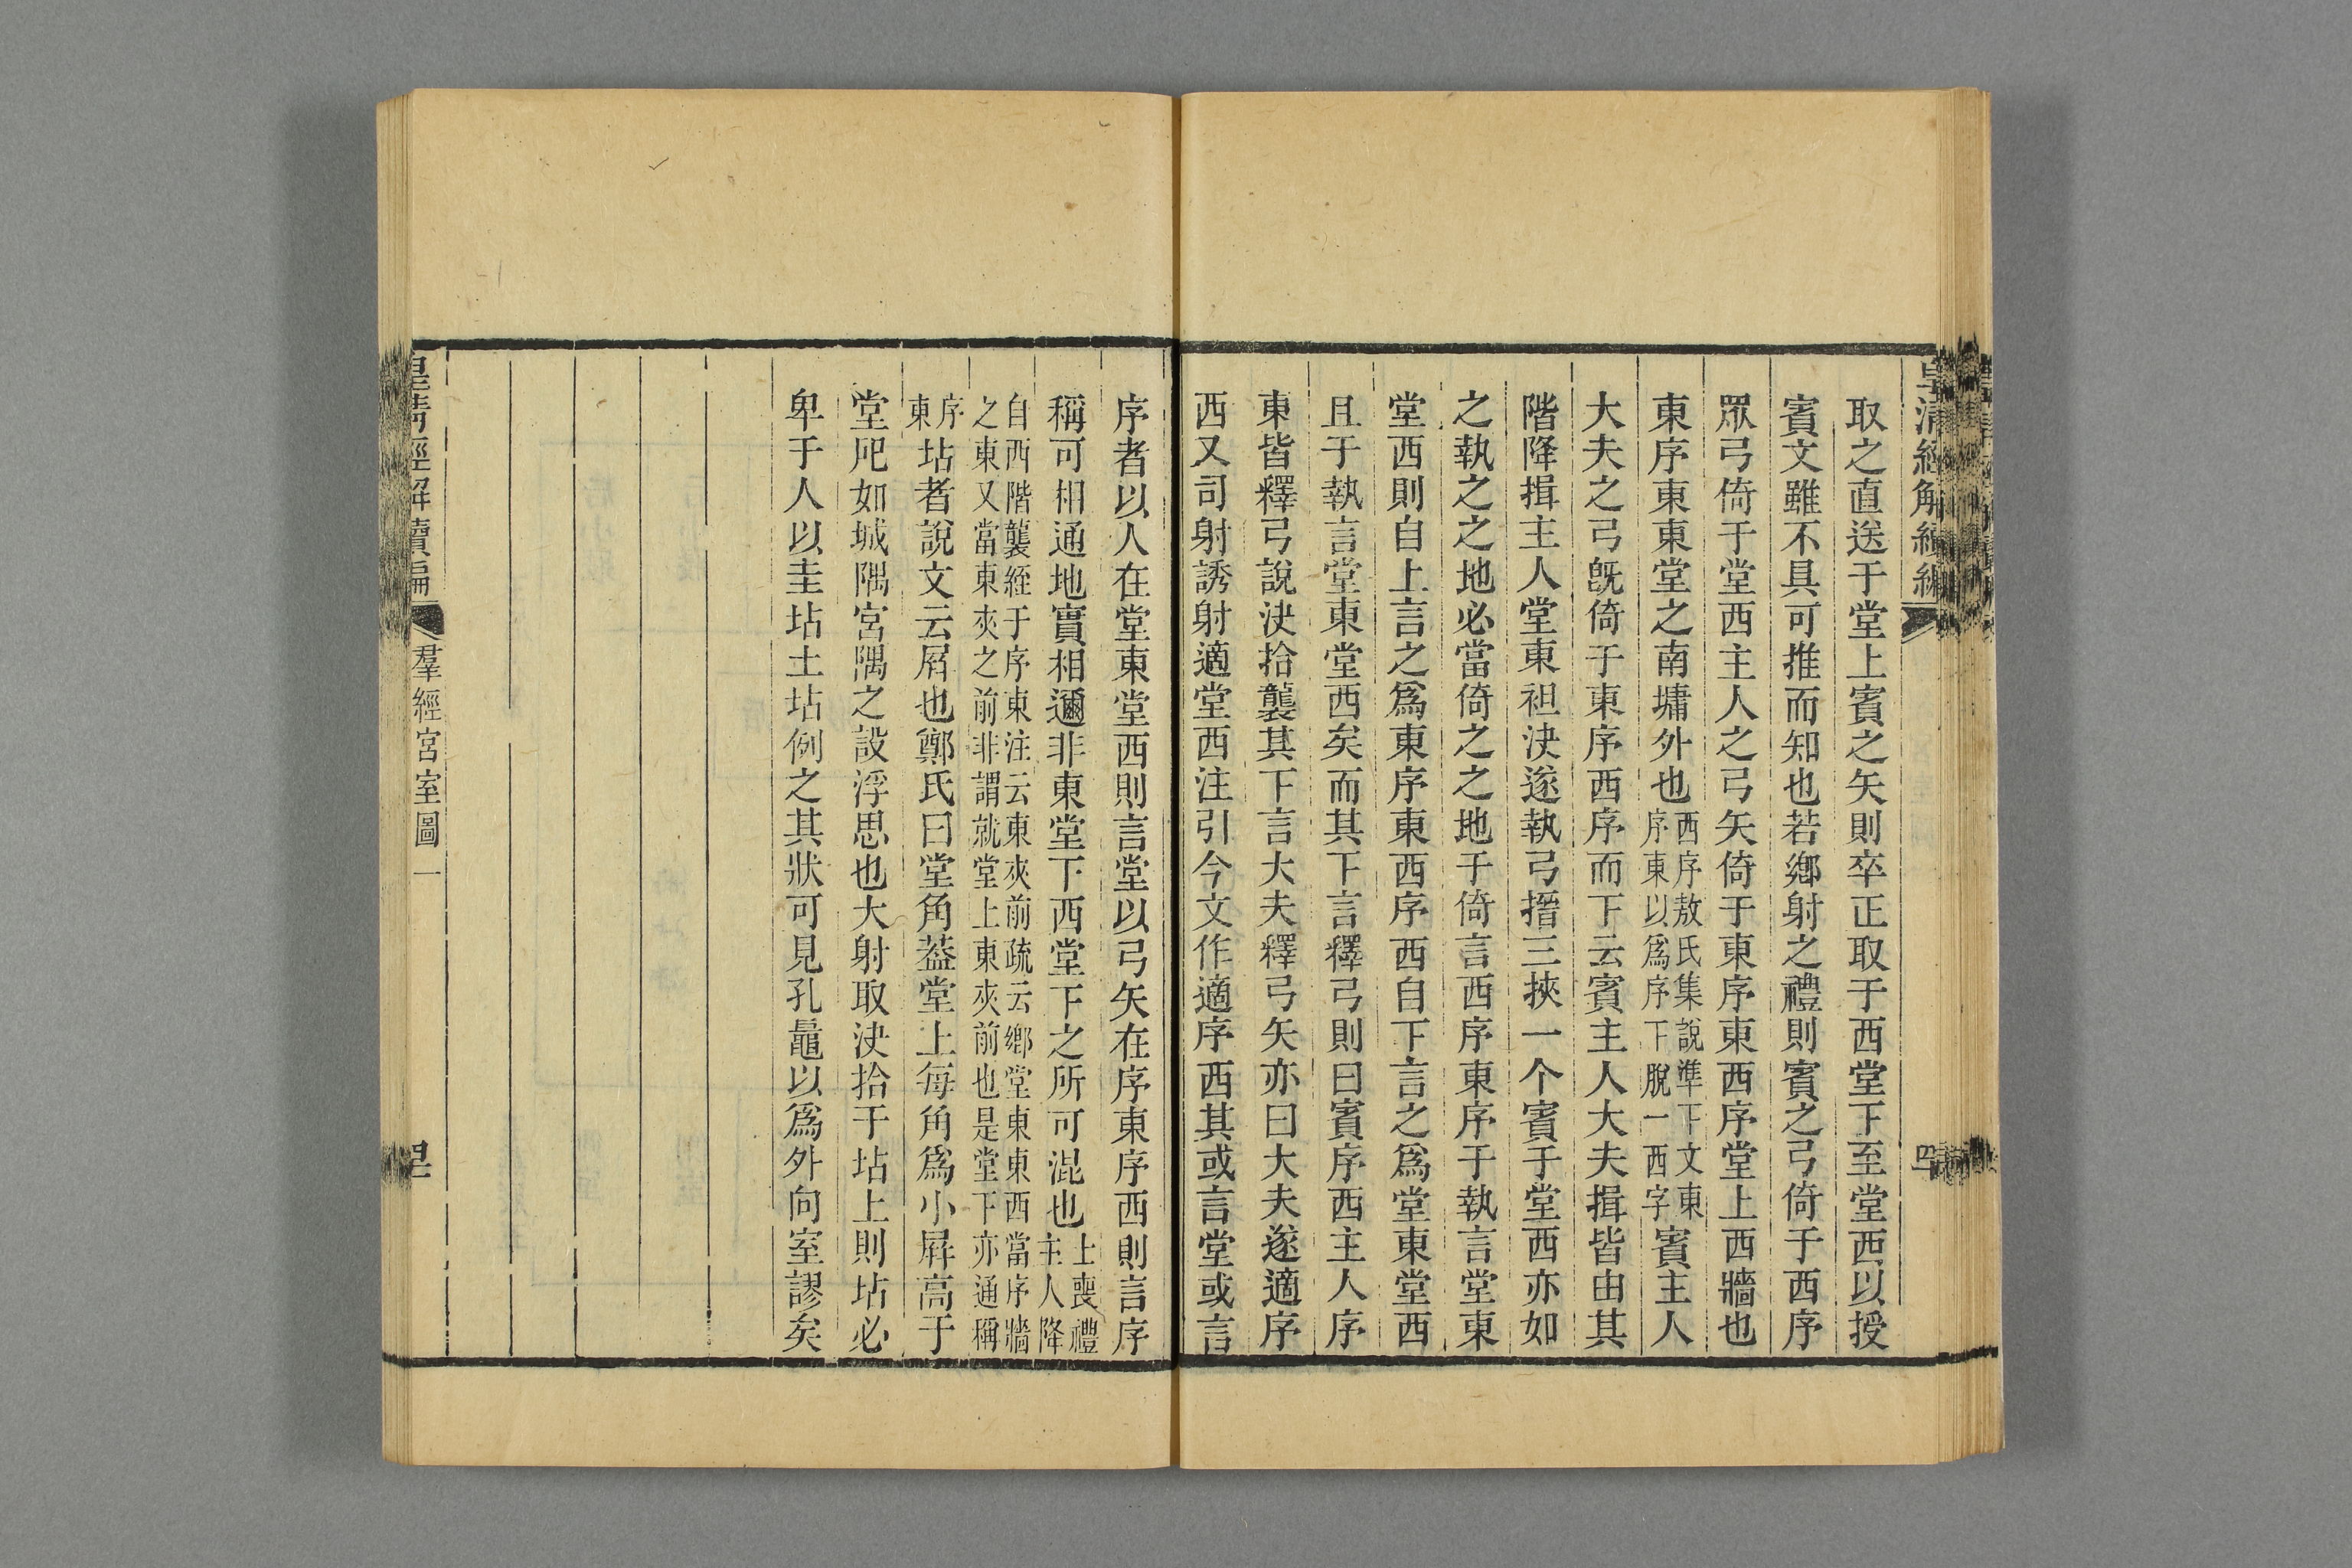 皇清經解續編
取之直送于堂上賓之矢則卒正取于西堂下至堂西以授
賓文雖不具可推而知也若鄉射之禮則賓之弓倚于西序
眾弓倚于堂西主人之弓矢倚于東序東西序堂上西牆也
東序東東堂之南墉外也西序敖氏集說準下文東序東以爲序下脫一西字賓主人
大夫之弓旣倚于東序西序而下云賓主人大夫揖皆由其
階降揖主人堂東袒決遂執弓搢三挾一个賓于堂西亦如
之執之之地必當倚之之地于倚言西序東序于執言堂東
堂西則自上言之爲東序東西序西自下言之爲堂東堂西
且于執言堂東堂西矣而其下言釋弓則曰賓序西主人序
東皆釋弓說決拾襲其下言大夫釋弓矢亦曰大夫遂適序
西又司射誘射適堂西注引今文作適序西其或言堂或言
序者以人在堂東堂西則言堂以弓矢在序東序西則言序
稱可相通地實相邇非東堂下西堂下之所可混也士喪禮主人降
自西階襲絰于序東注云東夾前疏云鄉堂東東西當序牆之東又當東夾之前非謂就堂上東夾前也是堂下亦通稱
序東坫者說文云屏也鄭氏曰堂角葢堂上每角爲小屏高于
堂戺如城隅宮隅之設浮思也大射取決拾于坫上則坫必
卑于人以圭坫土坫例之其狀可見孔鼂以爲外向室謬矣
皇清經解續編
羣經宮室圖一